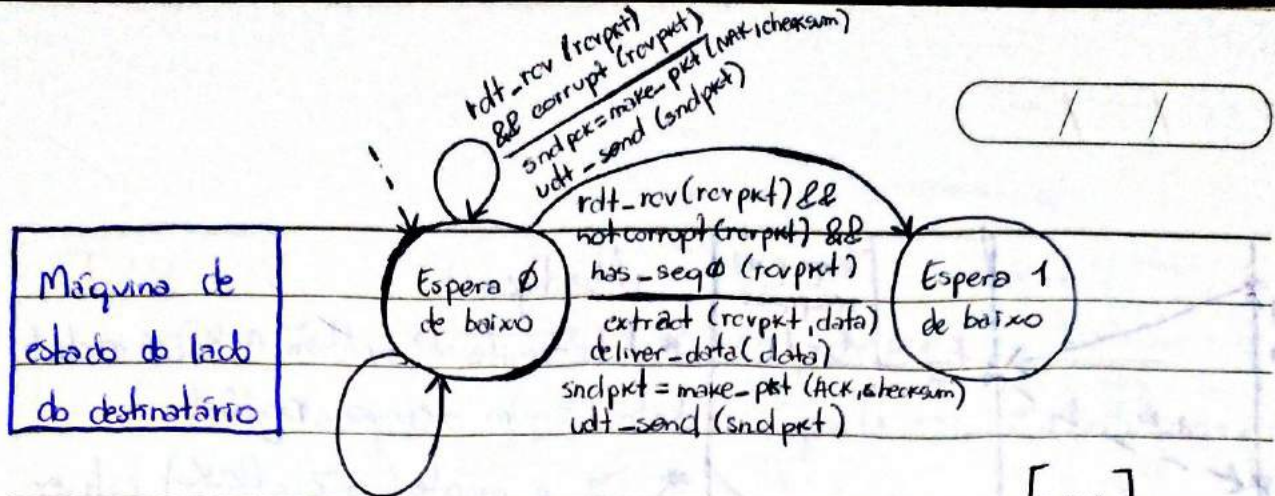 rdt_rcv (rcvpkt)
&& corrupt (rcvpkt)
sndpck = make_pkt (NAK, checksum)
udt_send (sndpkt)
/ /
Máquina de
estado do lado
do destinatário
Espera 0
de baixo
rdt_rcv(rcvpkt) &&
notcorrupt(rcvpkt) &&
has_seq0 (rcvpkt)
extract (rcvpkt, data)
deliver_data(data)
sndpkt = make_pkt (ACK, checksum)
udt_send (sndpkt)
Espera 1
de baixo